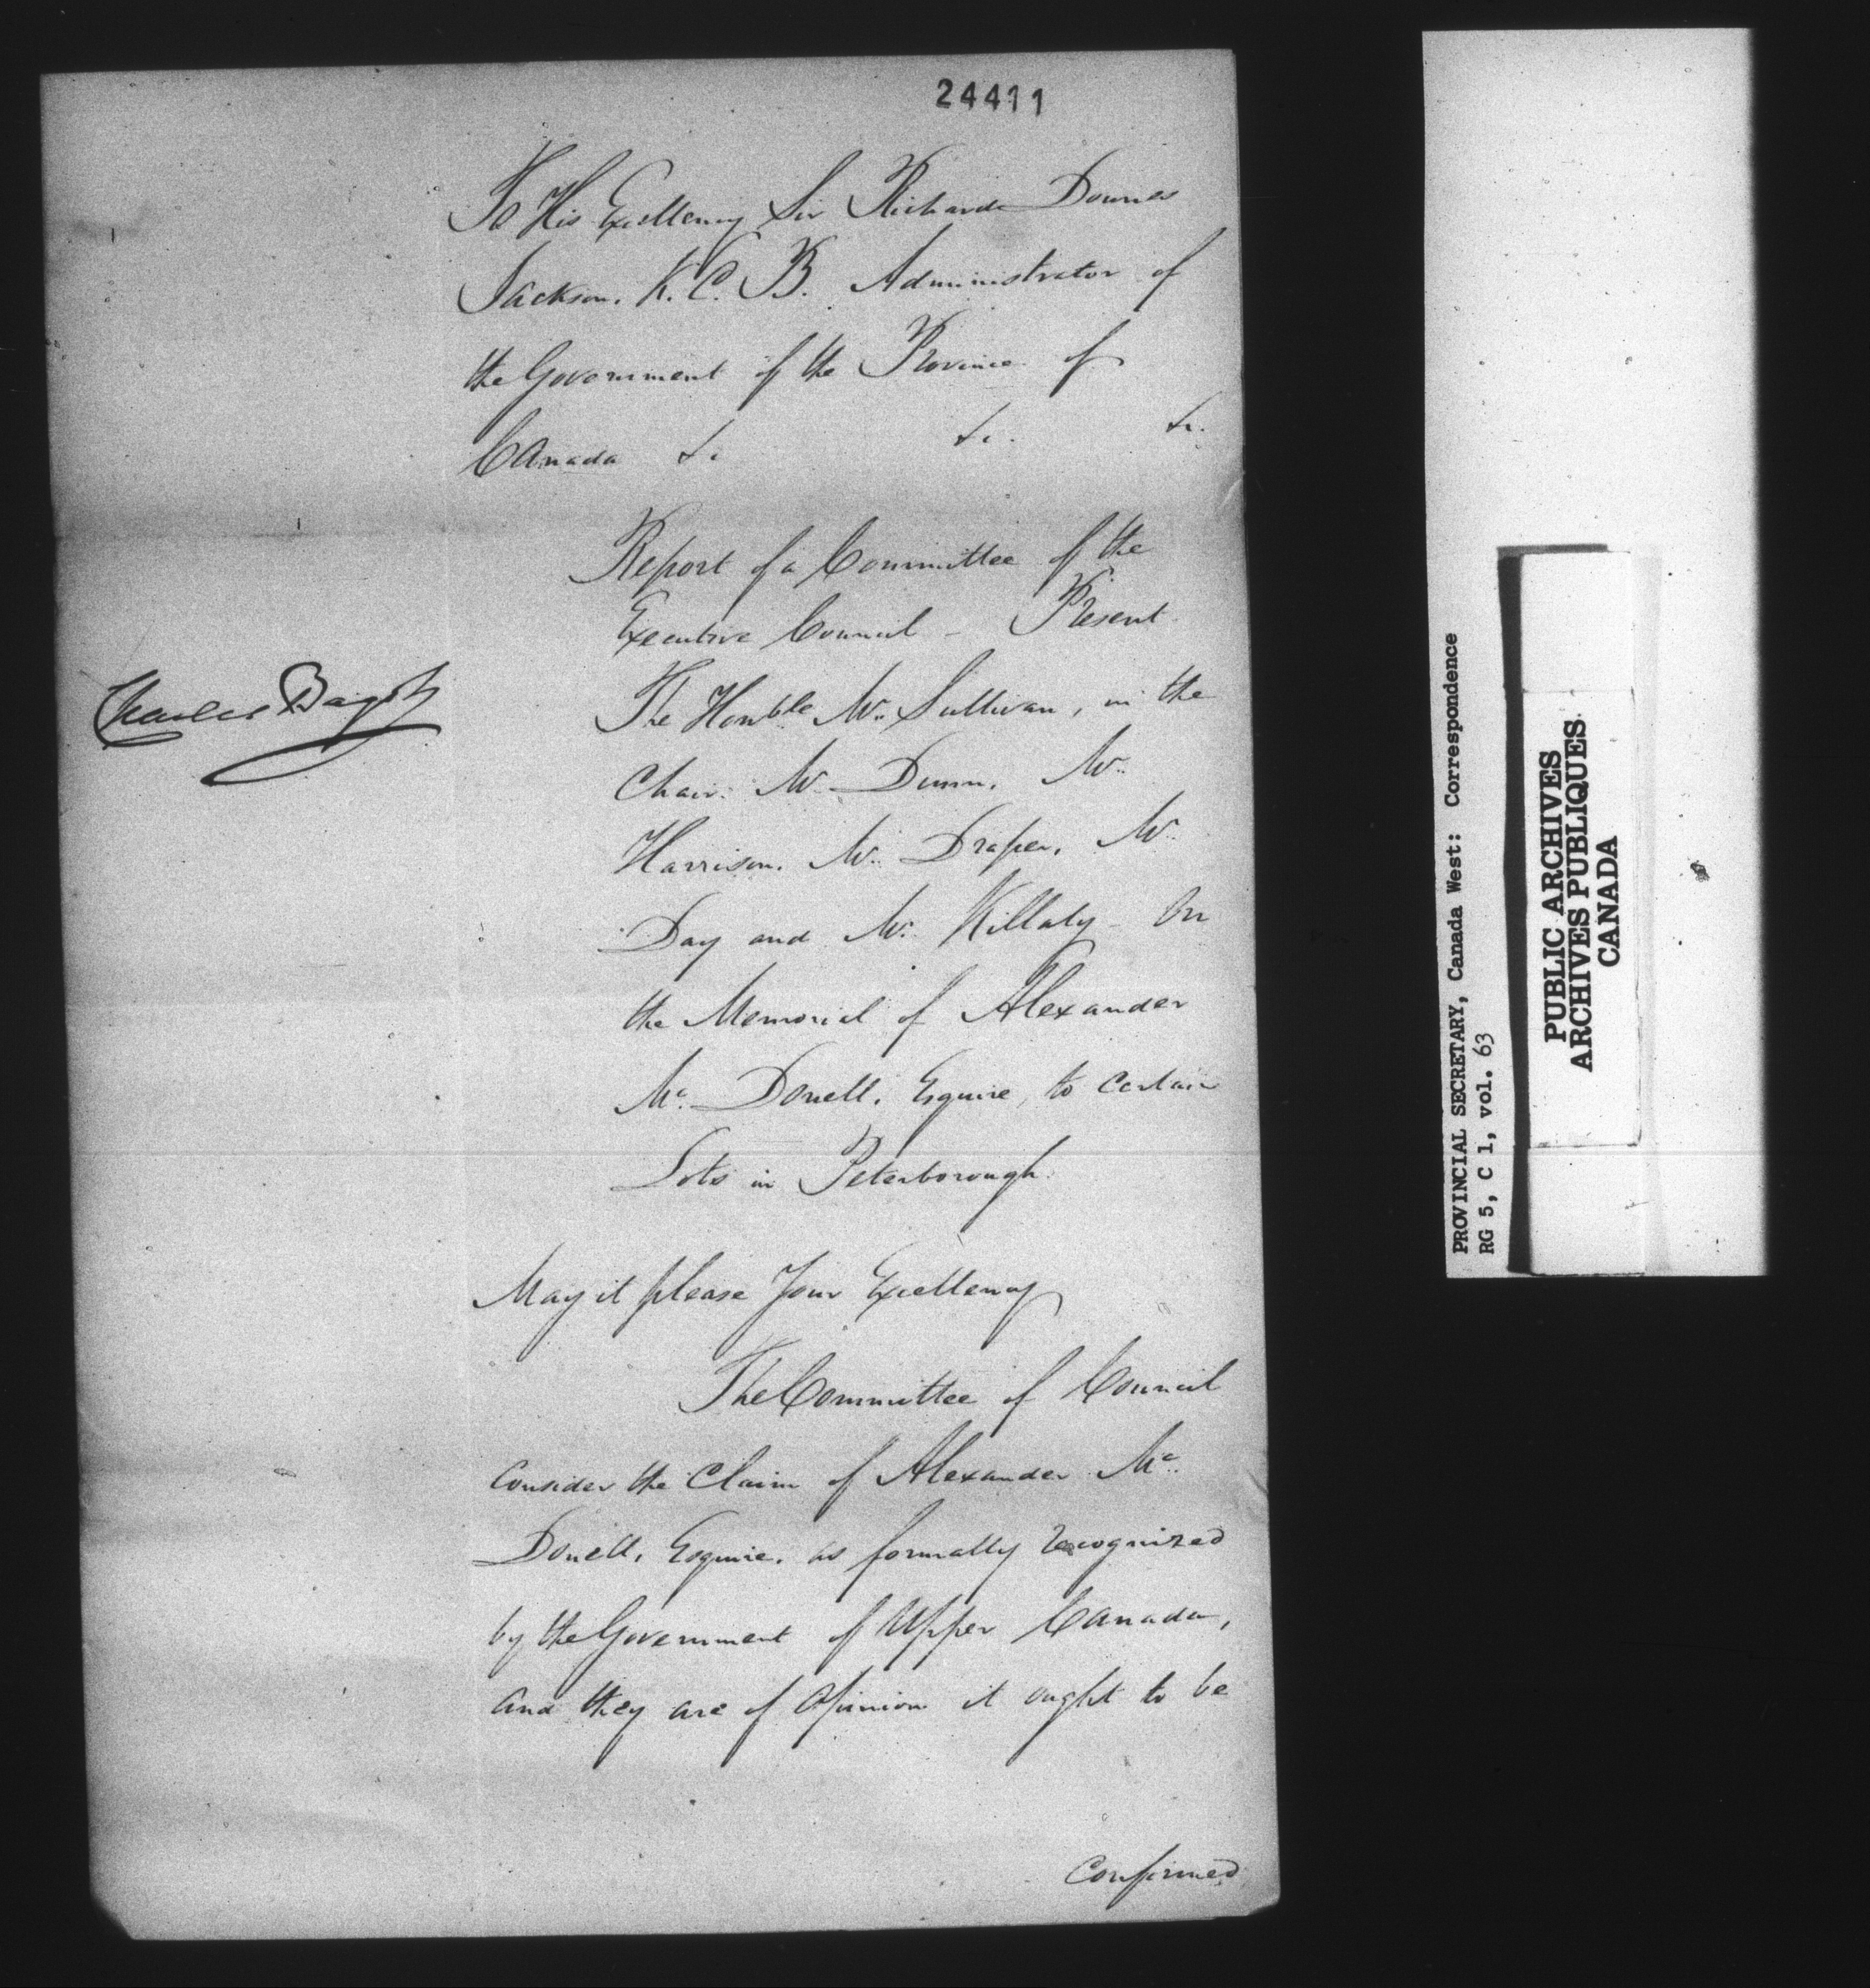 24411
To His Excellency Sir Richard Downes
Jackson. K. C. B. Administrator of
the Government of the Province of
Canada &c &c. &c.
Report of a Committee of the
Executive Council – Present
The Honble Mr. Sullivan, in the
Chair: Mr. Dunn, Mr.
Harrison. Mr. Draper, Mr.
Day and Mr. Killaly – On
the Memorial of Alexander
Mc. Donell, Esquire, to certain
Lots in Peterborough.
Charles Bagot
May it please Your Excellency
The Committee of Council
Consider the Claim of Alexander Mc.
Donell, Esquire. as formally recognized
by the Government of Upper Canada,
and they are of Opinion it ought to be
Confirmed
PROVINCIAL SECRETARY, Canada West: Correspondence
RG 5, C 1, vol. 63
PUBLIC ARCHIVES
ARCHIVES PUBLIQUES
CANADA